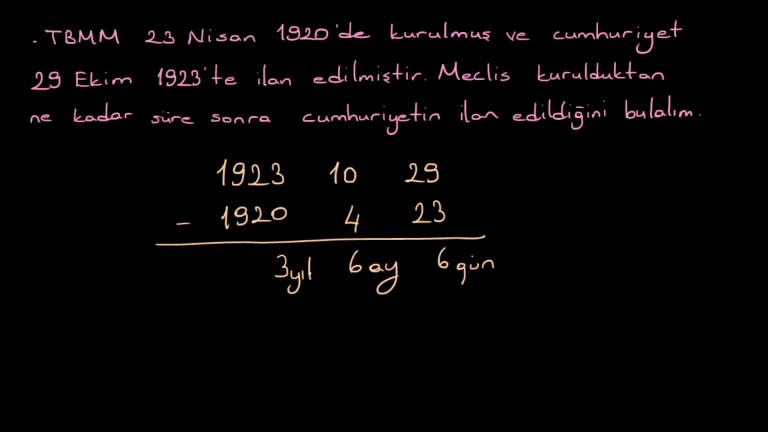 . TBMM 23 Nisan 1920'de kurulmuş ve cumhuriyet
29 Ekim 1923'te ilan edilmiştir. Meclis kurulduktan
ne kadar süre sonra cumhuriyetin ilan edildiğini bulalım.
1923 10 29
- 1920 4 23
3 yıl 6 ay 6 gün